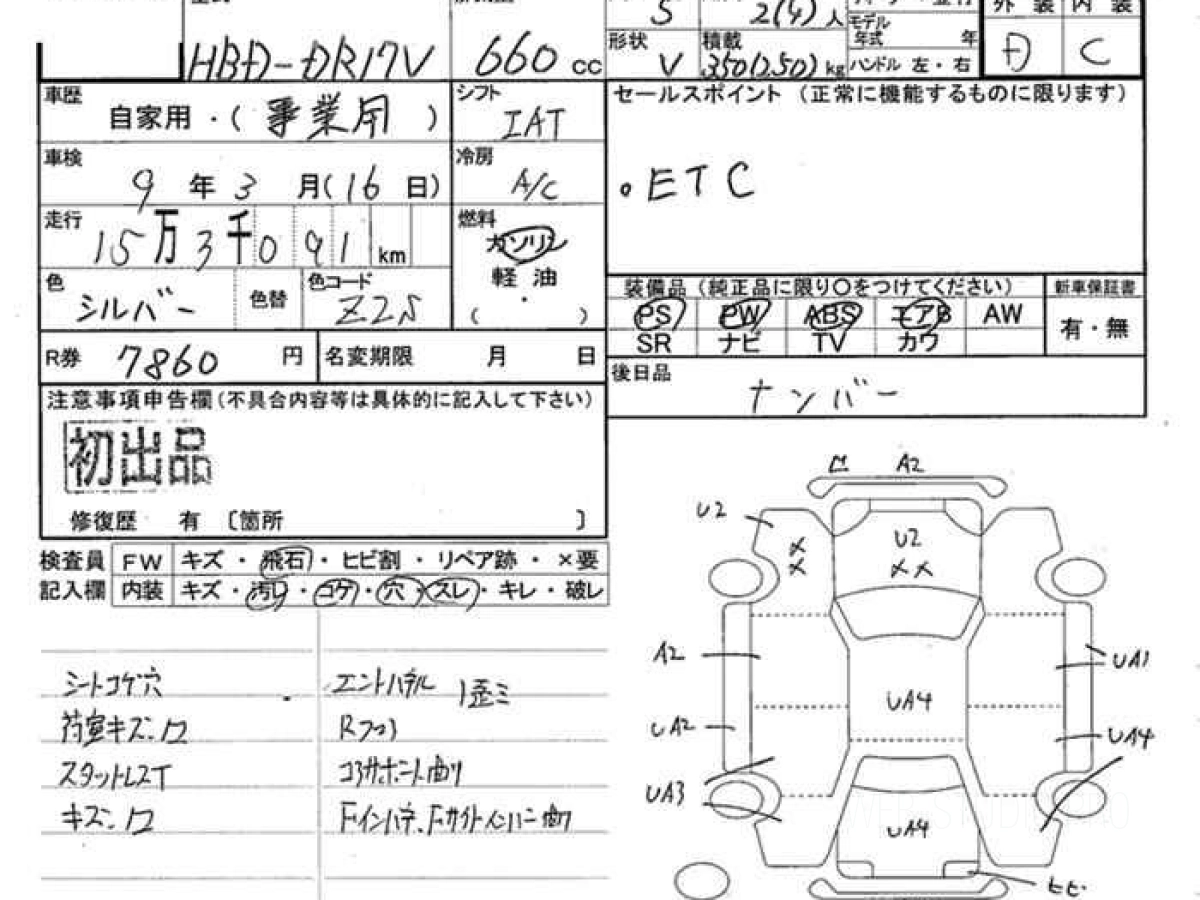 5 2(4)人
外装 内装
モデル年式 年
HBD-DR17V 660 cc
形状 V 積載 350(250) kg ハンドル 左・右
D C
車歴 自家用・(事業用)
シフト IAT
セールスポイント (正常に機能するものに限ります)
車検 9年3月(16日)
冷房 A/C
・ETC
走行 15万3千091 km
燃料 ガソリン
軽油
( ・ )
色 シルバー 色替 色コード Z2S
装備品 (純正品に限り○をつけてください) 新車保証書
PS PW ABS エアB AW
有・無
SR ナビ TV カワ
R券 7860円 名変期限 月 日
後日品 ナンバー
注意事項申告欄(不具合内容等は具体的に記入して下さい)
初出品
修復歴 有 〔箇所 〕
検査員 FW キズ・飛石・ヒビ割・リペア跡・×要
記入欄 内装 キズ・汚レ・コゲ・穴・スレ・キレ・破レ
シートコゲ穴
荷室キズ.凹
スタットレスT
キズ.凹
エントパネル 歪ミ
Rフロア
コアサポート曲り
A2
U2
××
U2
××
A2
UA1
UA4
UA2
UA4
UA3
UA4
ヒビ